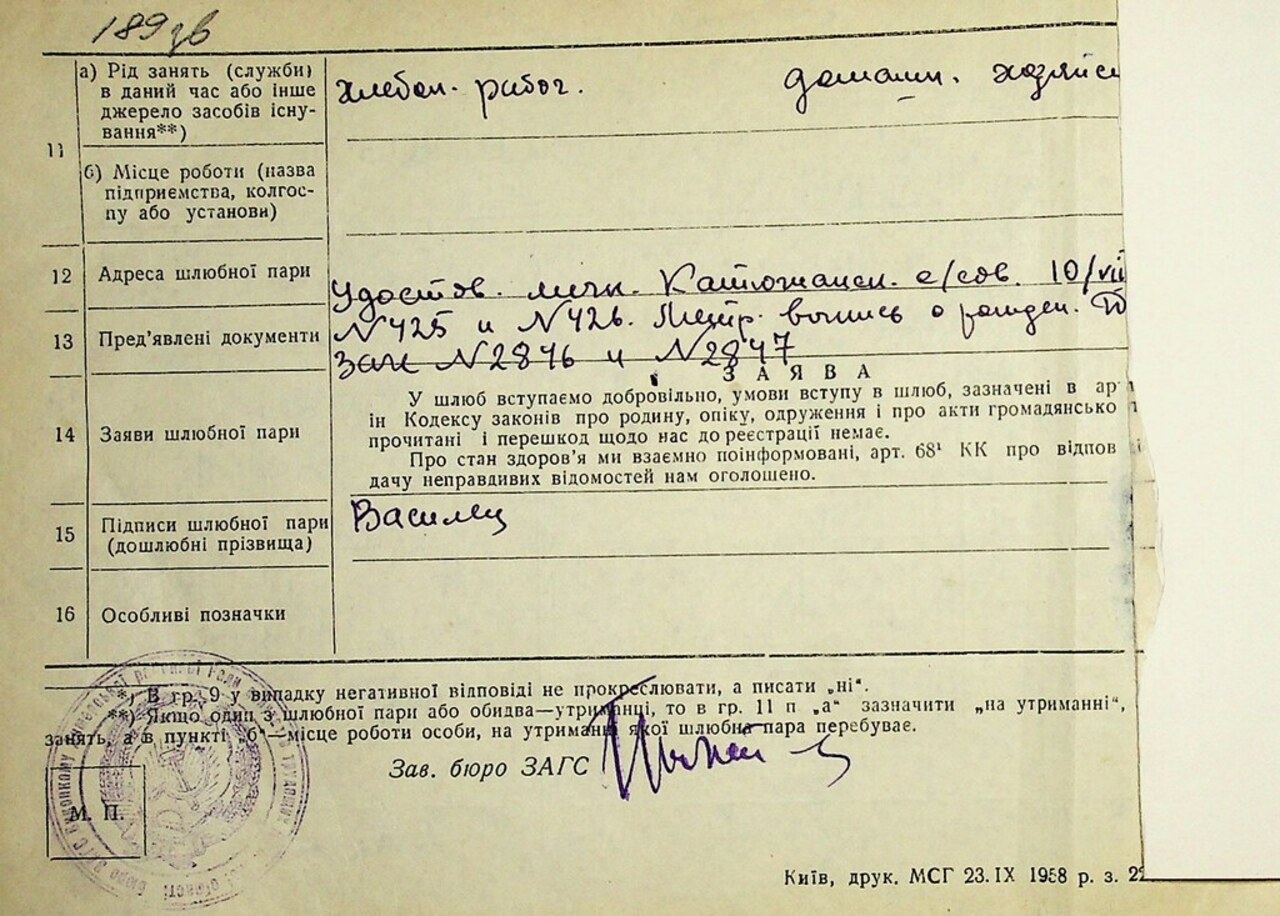 189зв
11
а) Рід занять (служби) в даний час або інше джерело засобів існування**)
хлебоп. работ. домашн. хозяйс
б) Місце роботи (назва підприємства, колгоспу або установи)
12 Адреса шлюбної пари
Удостов. личн. с/сов. 10/VII
13 Пред'явлені документи
N425 и N426. вып​ись о рожден.
N2846 и N2847
ЗАЯВА
14 Заяви шлюбної пари
У шлюб вступаємо добровільно, умови вступу в шлюб, зазначені в ар
ін Кодексу законів про родину, опіку, одруження і про акти громадянсько
прочитані і перешкод щодо нас до реєстрації немає.
Про стан здоров'я ми взаємно поінформовані, арт. 68¹ КК про відпов
дачу неправдивих відомостей нам оголошено.
15 Підписи шлюбної пари (дошлюбні прізвища)
Василец
16 Особливі позначки
*) В гр. 9 у випадку негативної відповіді не прокреслювати, а писати „ні“.
**) Якщо один з шлюбної пари або обидва—утриманці, то в гр. 11 п „а“ зазначити „на утриманні“,
занять, а в пункті „б“—місце роботи особи, на утриманні якої шлюбна пара перебуває.
Зав. бюро ЗАГС
М. П.
Київ, друк. МСГ 23.IX 1958 р. з. 22